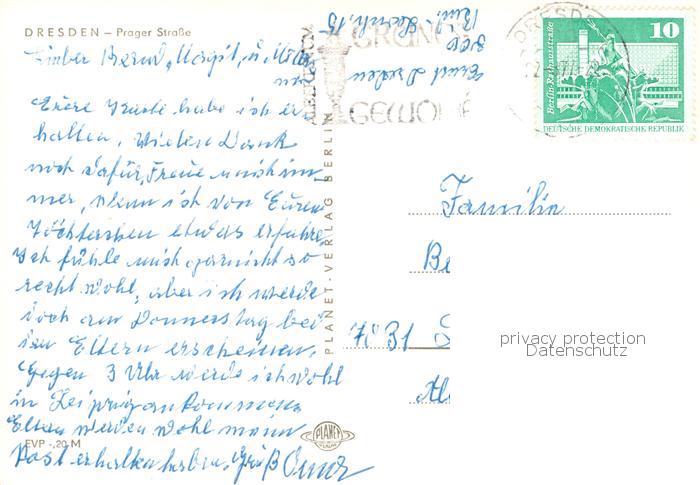 DRESDEN – Prager Straße
Lieber Bernd, Margit, u.
Eure Karte habe ich er-
halten, Vielen Dank
noch dafür, Freue mich im
mer, wenn ich von Euren
Töchterchen etwas erfahre,
Ich fühle mich garnicht so
recht wohl, aber ich werde
doch am Donnerstag bei
den Eltern erscheinen,
Gegen 3 Uhr werde ich wohl
in Leipzig ankommen
Eltern werden wohl meine
Post erhalten haben, Gruß
EVP -,20 M
PLANET-VERLAG BERLIN
PLANET
Dresden
DRESDEN
10
Berlin, Rathausstraße
DEUTSCHE DEMOKRATISCHE REPUBLIK
Familie
Be
7031
privacy protection
Datenschutz